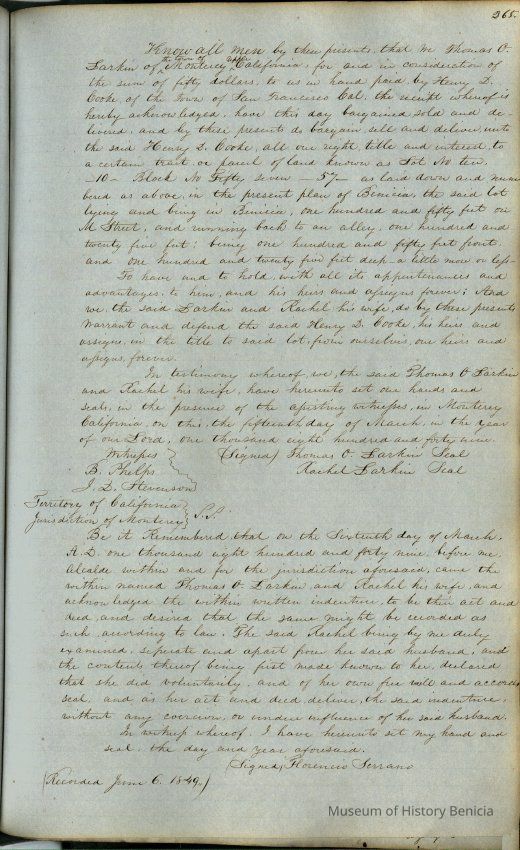 265.
Know all men by these presents, that we Thomas O.
Larkin of the town of Monterey, California, for and in consideration of
the sum of fifty dollars, to us in hand paid by Henry D.
Cooke, of the Town of San Francisco Cal. the receipt whereof is
hereby acknowledged, have this day bargained sold and de-
livered, and by these presents do bargain, sell and deliver, unto
the said Henry D. Cooke, all our right, title and interest, to
a certain tract, or parcel of land known as Lot No ten.
-10- Block No Fifty seven -57- as laid down and num
bered as above, in the present plan of Benicia, the said lot
lying and being in Benicia, one hundred and fifty feet on
M Street, and running back to an alley, one hundred and
twenty five feet; being one hundred and fifty feet front.
and one hundred and twenty five feet deep a little more or less-
To have and to hold, with all its appurtenances and
advantages, to him, and his heirs and assigns forever; And
we, the said Larkin and Rachel his wife, do by these presents
warrant and defend the said Henry D. Cooke, his heirs and
assigns, in the title to said lot, from ourselves, our heirs and
assigns, forever.
In testimony whereof, we, the said Thomas O Larkin
and Rachel his wife, have hereunto set our hands and
seals, in the presence of the witnesses, in Monterey
California, on this, the fifteenth day of March, in the year
of our Lord, one thousand eight hundred and forty nine.
Witnesses (Signed) Thomas O. Larkin Seal
B. Phelps Rachel Larkin Seal
J. D. Stevenson
Territory of California
Jurisdiction of Monterey S.S.
Be it Remembered, that on the Sixteenth day of March,
A.D. one thousand eight hundred and forty nine, before me.
Alcalde within and for the jurisdiction aforesaid, came the
within named Thomas O. Larkin, and Rachel his wife, and
acknowledged the within written indenture, to be their act and
deed, and desired that the same might be recorded as
such, according to law. The said Rachel being by me duly
examined, seperate and apart from her said husband, and
the contents thereof being first made known to her, declared
that she did voluntarily, and of her own free will and accord,
seal, and as her act and deed, deliver, the said indenture,
without any coercion, or undue influence of her said husband.
In witness whereof, I have hereunto set my hand and
seal, the day and year aforesaid.
(Signed) Florencio Serrano
(Recorded June 6. 1849.)
Museum of History Benicia